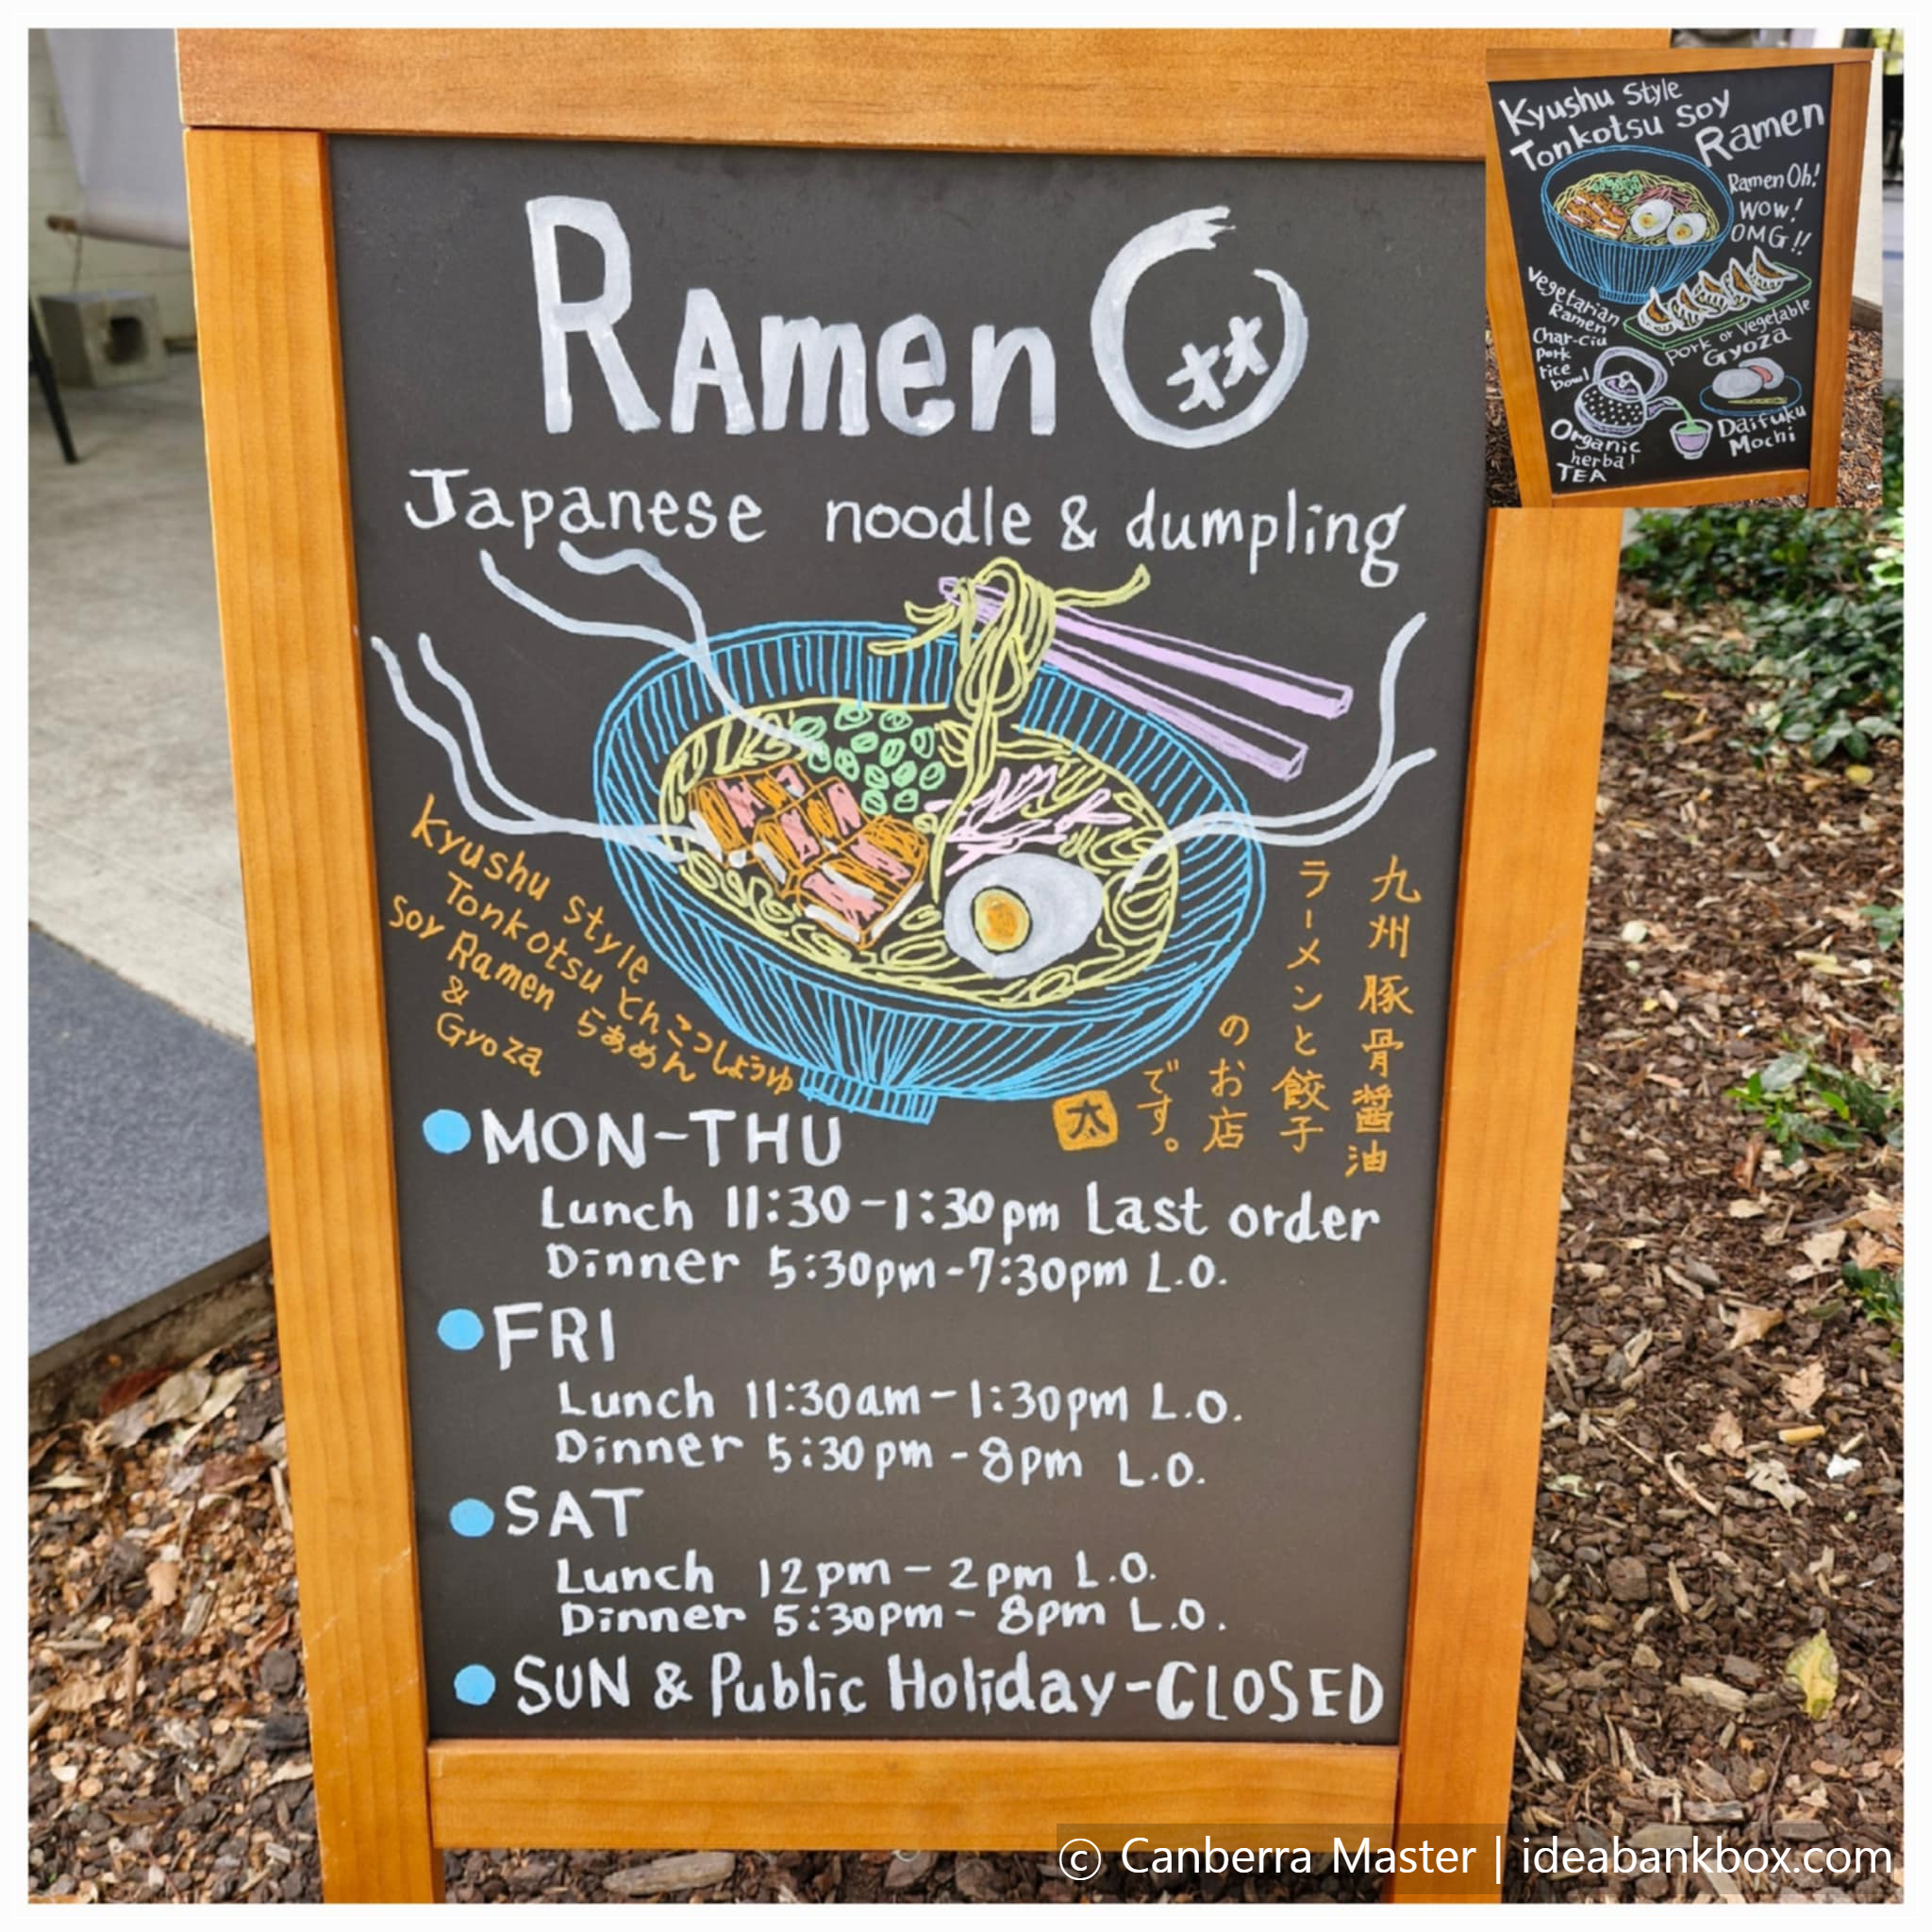 Ramen O
Japanese noodle & dumpling
Kyushu style
Tonkotsu
Soy Ramen
&
Gyoza
とんこつしょうゆ
らぁめん
九州豚骨醤油
ラーメンと餃子
のお店
です。
太
MON-THU
Lunch 11:30-1:30pm Last order
Dinner 5:30pm-7:30pm L.O.
FRI
Lunch 11:30am-1:30pm L.O.
Dinner 5:30pm-8pm L.O.
SAT
Lunch 12pm-2pm L.O.
Dinner 5:30pm-8pm L.O.
SUN & Public Holiday-CLOSED
Kyushu Style
Tonkotsu Soy
Ramen
Ramen Oh!
WOW!
OMG!!
Vegetarian
Ramen
Char-ciu
pork
rice
bowl
Pork or Vegetable
Gyoza
Organic
herbal
TEA
Daifuku
Mochi
© Canberra Master | ideabankbox.com